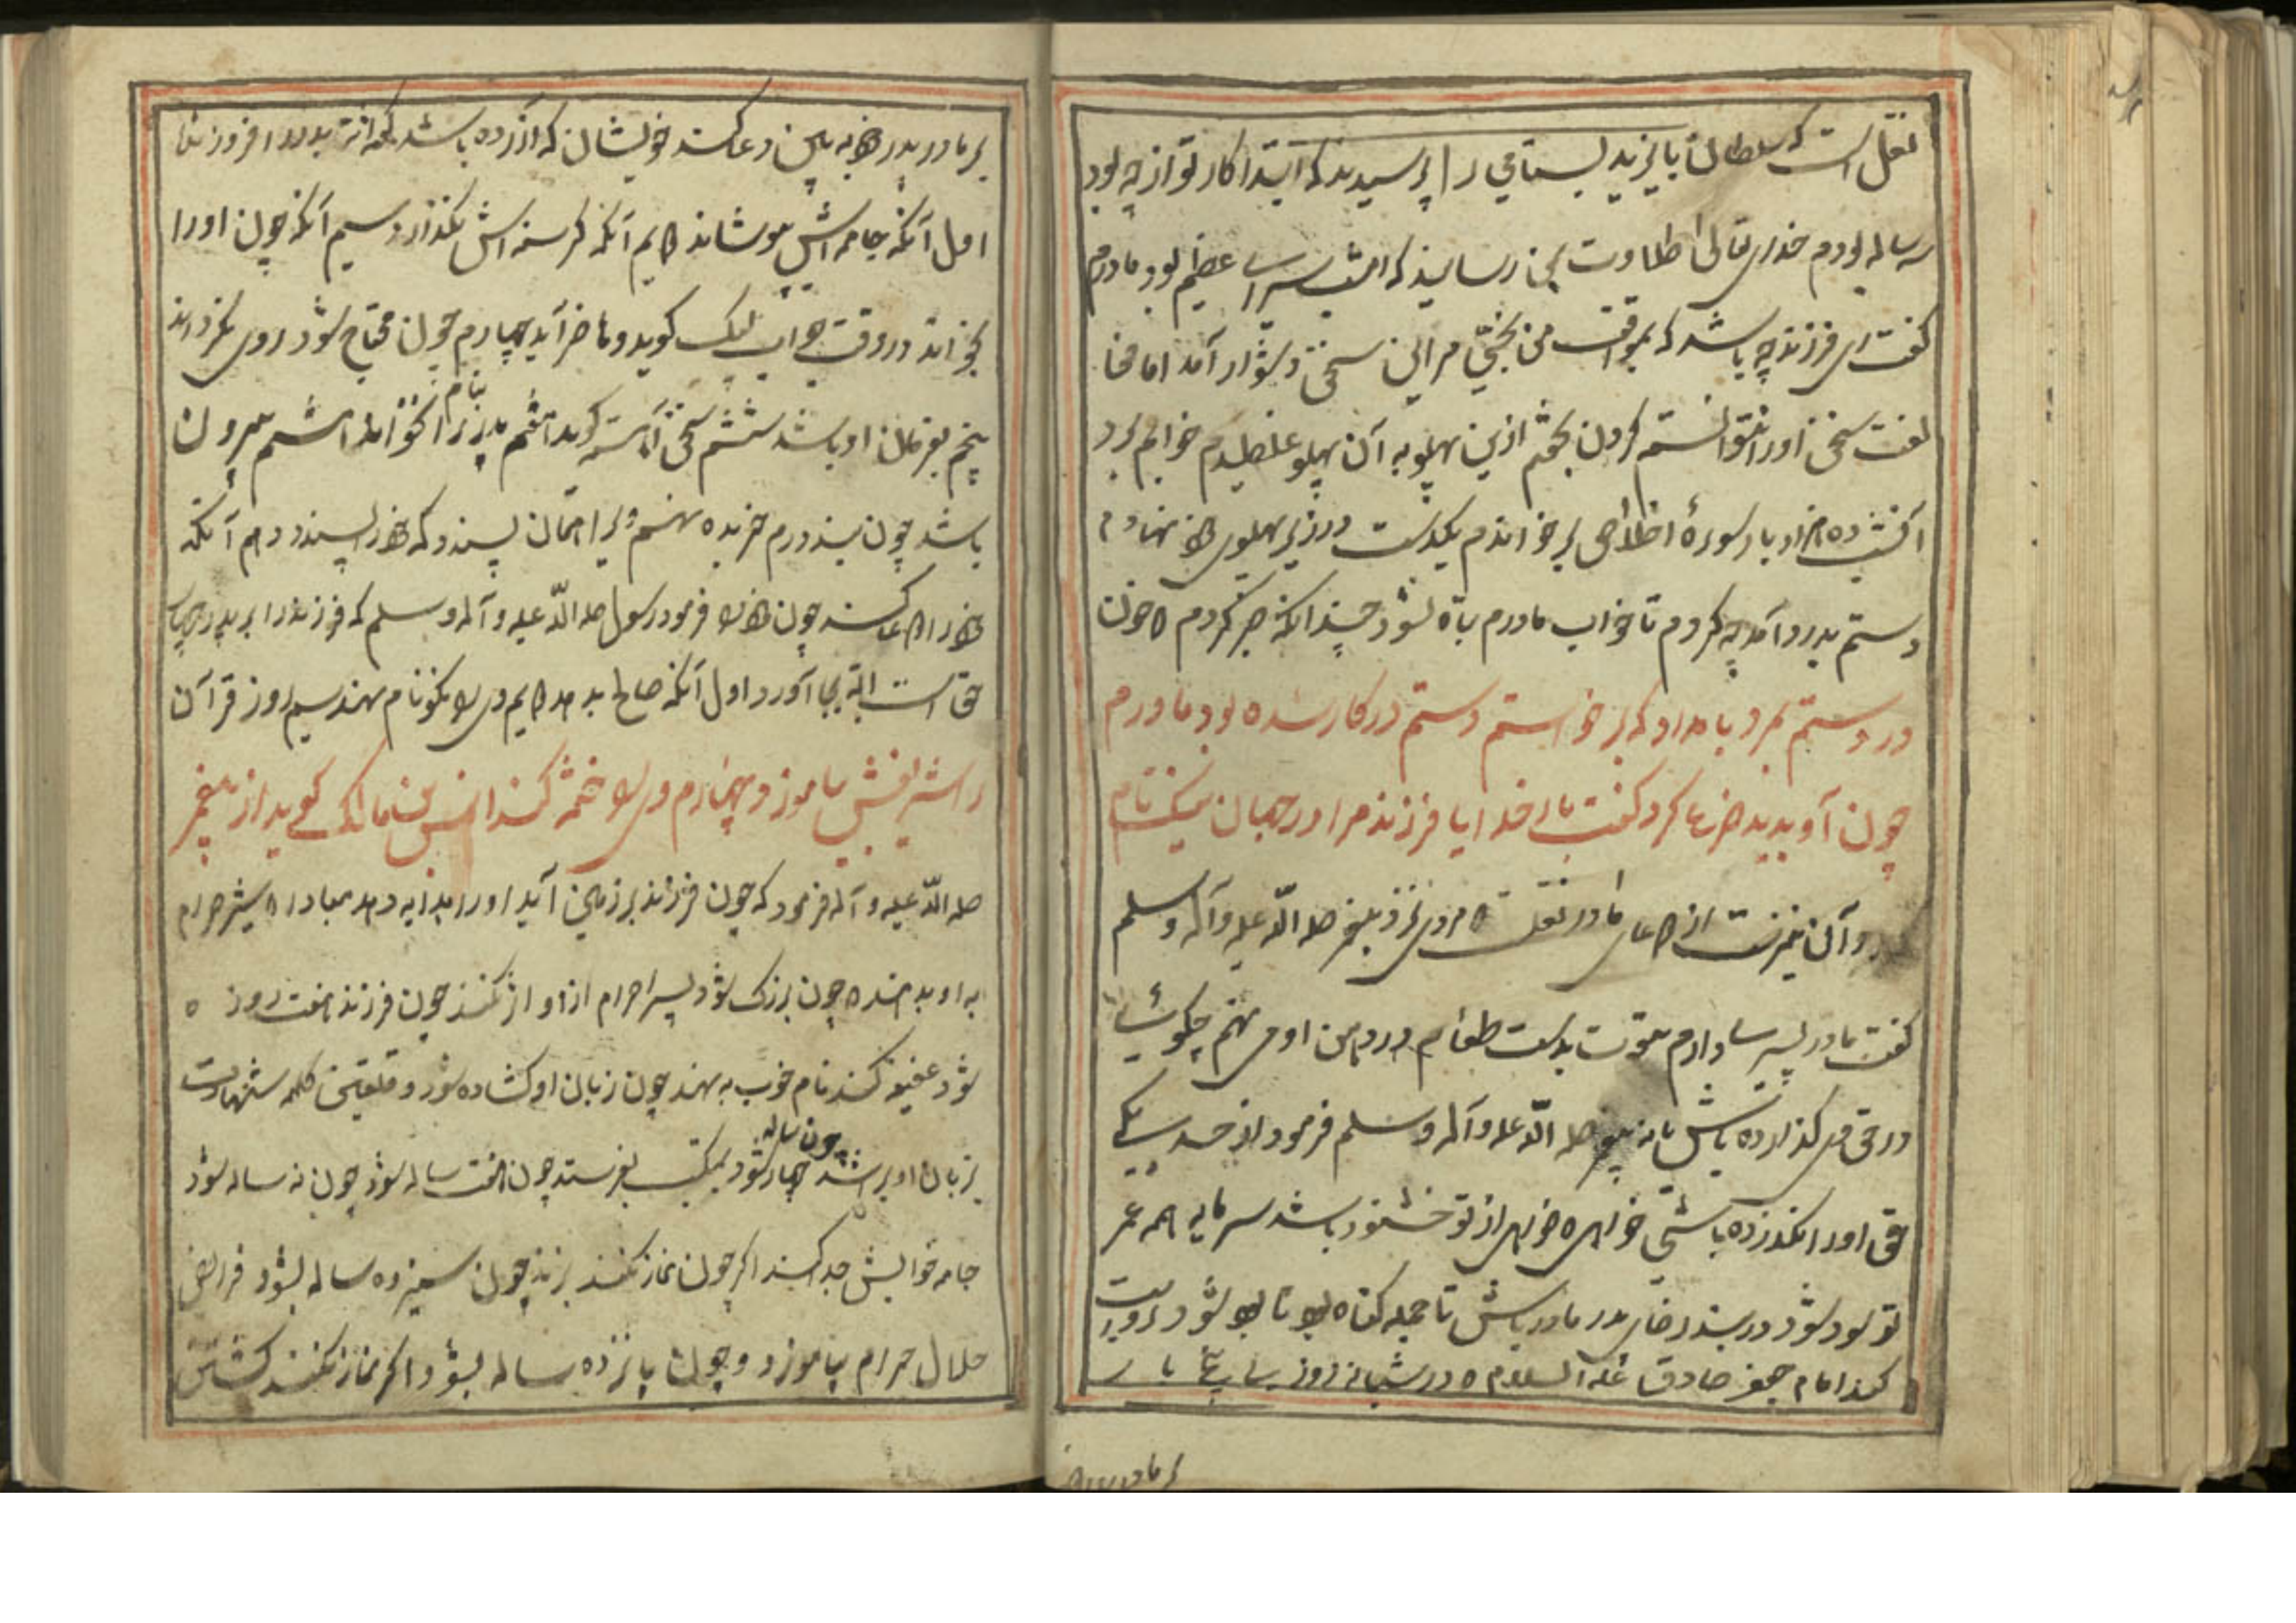 نقل است که سلطان بایزید بسطامی را پرسیدند که ابتدا کار تو از چه بود
سه ساله بودم خدای تعالی طلاوت بمن رسانید که امشب سرمای عظیم بود مادرم
گفت ای فرزند چه باشد که بموافقت من بخسبی مر این سخن دشوار آمد اما مخا
لفت سخن او را نتوانستم کردن بخفتم ازین پهلو به آن پهلو غلطیدم خوابم نبرد
آن شب ده هزار بار سورهٔ اخلاص بر خواندم یکدست در زیر پهلوی خود نهادم
دستم بدرد آمد چه کردم تا خواب مادرم تباه نشود چندانکه صبر کردم خون
در دستم بمرد بامداد که برخواستم دستم در کار شده بود مادرم
چون آن بدید دعا کرد گفت بار خدایا فرزند مرا در جهان نیک نام
و آن نیز نیست از دعای مادر نقلست مردی نزد پیغمبر صلی الله علیه وآله وسلم
گفت مادر پیر دارم بدست طعام در دهن او می نهم چگونه
در حق وی گذارده باشم یا نه پیغمبر صلی الله علیه وآله وسلم فرمود از صد یکی
حق او را نگذارده باشی خواهی خدای از تو خشنود باشد سرمایه همه عمر
تو بود در بند رضای پدر مادر باش تا جمله گناه تو شود روایت
کند امام جعفر صادق علیه السلام در شبانه روز پنج بار
بر مادر پدر
بر مادر پدر خود به دعا کند خویشان که آزرده باشد
اول آنکه جامه اش پوشاند دویم آنکه گرسنه اش نگذارد سیم آنکه چون او را
بخواند در وقت جواب لبیک گوید و حاضر آید چهارم چون محتاج شود روی نگرداند
پنجم بفرمان او باشد ششم سخن آهسته گوید هفتم پدر را بنام نخواند هشتم بیرون
باشد چون بنده درم خریده نهم ویرا همان پسندد که خود را پسندد دهم آنکه
خود را دعا کند چون فرمود رسول صلی الله علیه وآله وسلم که فرزند را بر پدر چهار
حق است البته بجا آورد اول آنکه صالح بدهد دویم وی را نکو نام نهند سیم روز قرآن
را شریفش بیاموزد چهارم وی را ختنه کند انس بن مالک گوید از پیغمبر
صلی الله علیه وآله فرمود که چون فرزند بر زمین آید او را بدایه دهد مبادا شیر حرام
به او بدهند چون بزرگ شود پسر احرام از او کنند چون فرزند هفت روز
شود عقیقه کند نام خوب به نهند چون زبان او گشاده شود و تلقین کلمه شهادت
بزبان او برسد چون چهار ساله شود بمکتب بفرستد چون هفت ساله شود چون نه ساله شود
جامه خوابش جدا کنند اگر چون نماز نکند بزند چون سیزده ساله بشود فرائض
حلال حرام بیاموزد و چون پانزده ساله بشود اگر نماز نکند کشتن